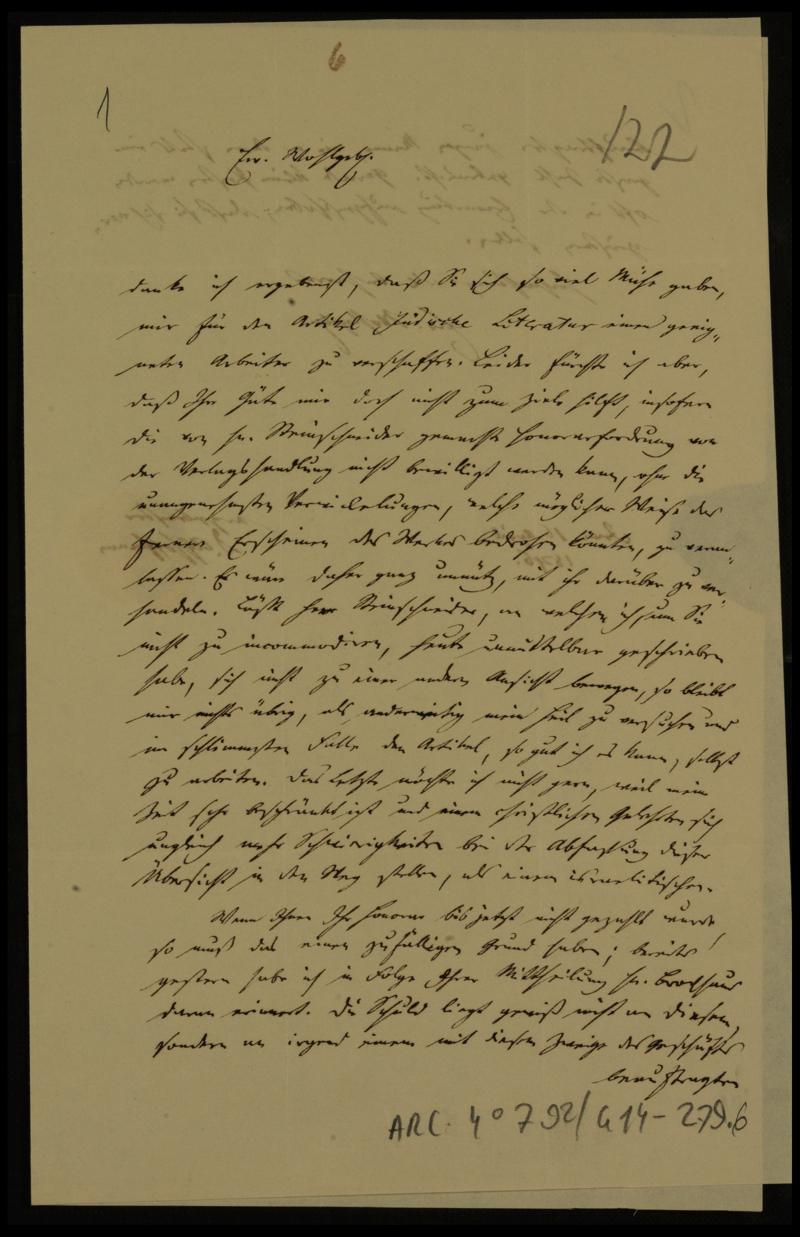 6
1
122
Ew. Wohlgeb.
danke ich ergebenst, daß Sie sich so viel Mühe gaben,
mir für den Artikel Jüdische Literatur einen geeig-
neten Arbeiter zu verschaffen. Leider fürchte ich aber,
daß Ihre Güte mir doch nicht zum Ziele hilft, insofern
die von Hr. Steinschneider gemachte Honorarforderung von
der Verlagshandlung nicht bewilligt werden kann, ohne die
unangenehmsten Verwickelungen, welche möglicher Weise das
fernere Erscheinen des Werkes bedrohen könnten, zu veran-
lassen. Es wäre daher ganz unnütz, mit ihr darüber zu ver-
handeln. Läßt Herr Steinschneider, an welchen ich, um Sie
nicht zu incommodiren, heute unmittelbar geschrieben
habe, sich nicht zu einer andern Ansicht bewegen, so bleibt
mir nichts übrig, als anderweitig mein Heil zu versuchen und
im schlimmsten Falle den Artikel, so gut ich es kann, selbst
zu arbeiten. Das Letzte möchte ich nicht gern, weil meine
Zeit sehr beschränkt ist und einem christlichen Gelehrten sich
ungleich mehr Schwierigkeiten bei der Abfassung dieser
Übersicht in den Weg stellen, als einem israelitischen.
Wenn Ihnen Ihr Honorar bis jetzt nicht gezahlt wurde,
so muß das einen zufälligen Grund haben; bereits
gestern habe ich in Folge Ihrer Mittheilung Hr. Brockhaus
daran erinnert. Die Schuld liegt gewiß nicht an diesem,
sondern an irgend einem mit diesem Zweige des Geschäftes
beauftragten
ARC. 4° 792/G14-279.6